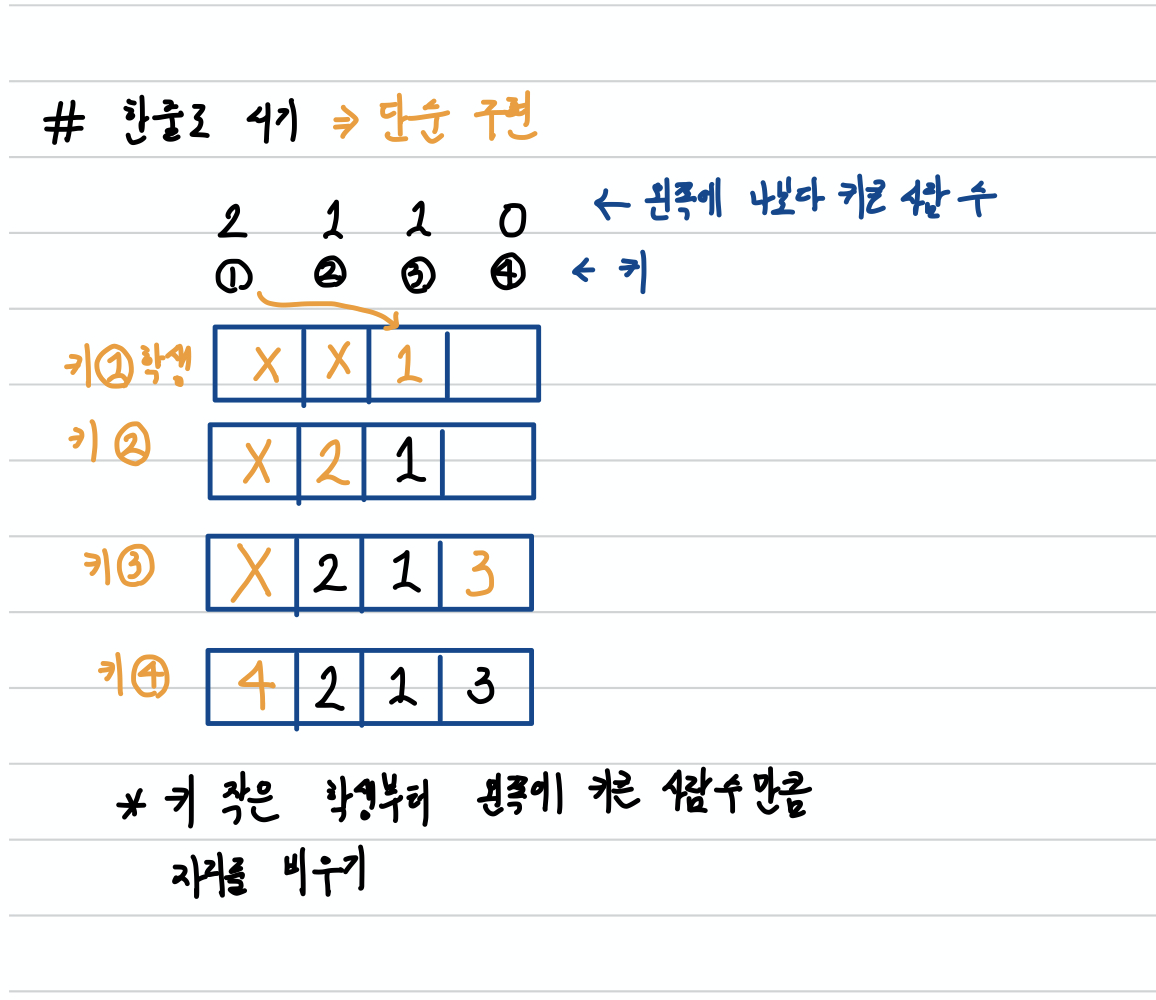 # 한줄로 서기 ⇒ 단순 구현
2 1 1 0 ← 왼쪽에 나보다 키큰 사람 수
① ② ③ ④ ← 키
키①학생 X X 1
키② X 2 1
키③ X 2 1 3
키④ 4 2 1 3
* 키 작은 학생부터 왼쪽에 키큰 사람수만큼
자리를 비우기